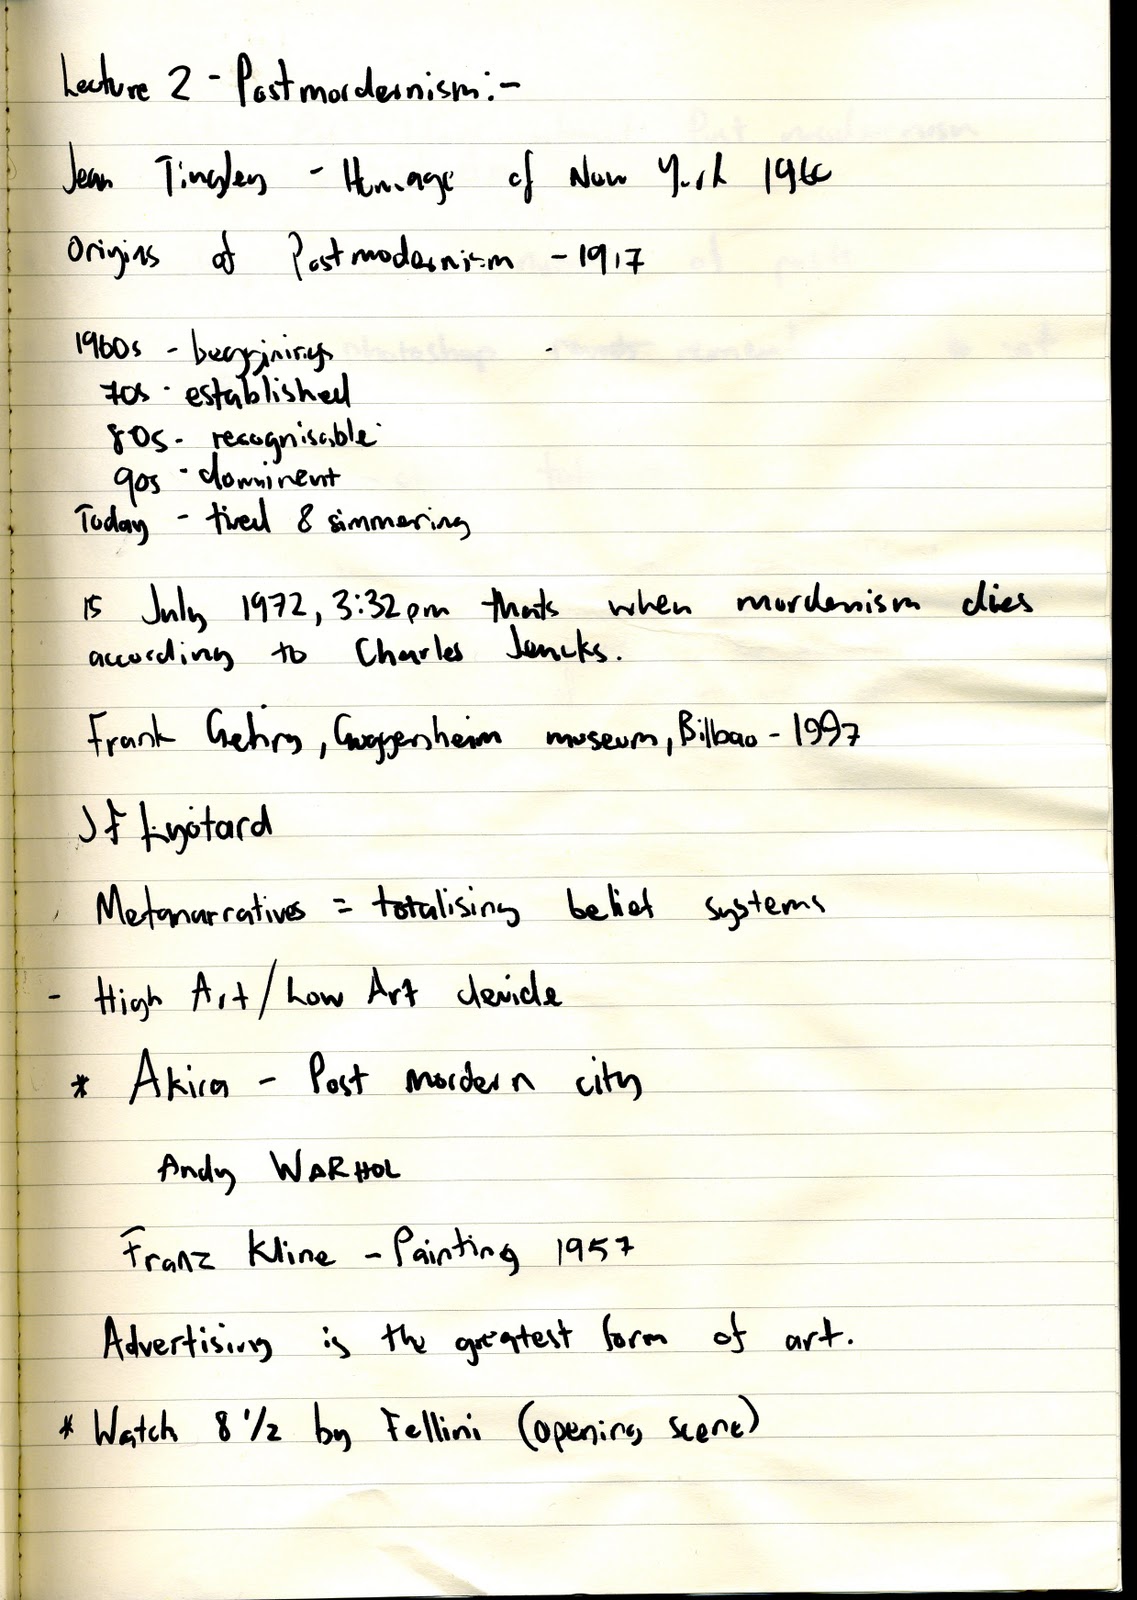 Lecture 2 - Postmordernism:-
Jean Tingley - Homage of New York 1960
Origins of Postmodernism - 1917
1960s - begginings
70s - established
80s - recognisable
90s - dominent
Today - tired & simmering
15 July 1972, 3:32pm thats when mordenism dies
according to Charles Jencks.
Frank Gehry, Guggenheim museum, Bilbao - 1997
JF Lyotard
Metanarratives = totalising belief systems
- High Art/Low Art devide
* Akira - Post mordern city
Andy WARHOL
Franz Kline - Painting 1957
Advertising is the greatest form of art.
* Watch 8 1/2 by Fellini (opening scene)